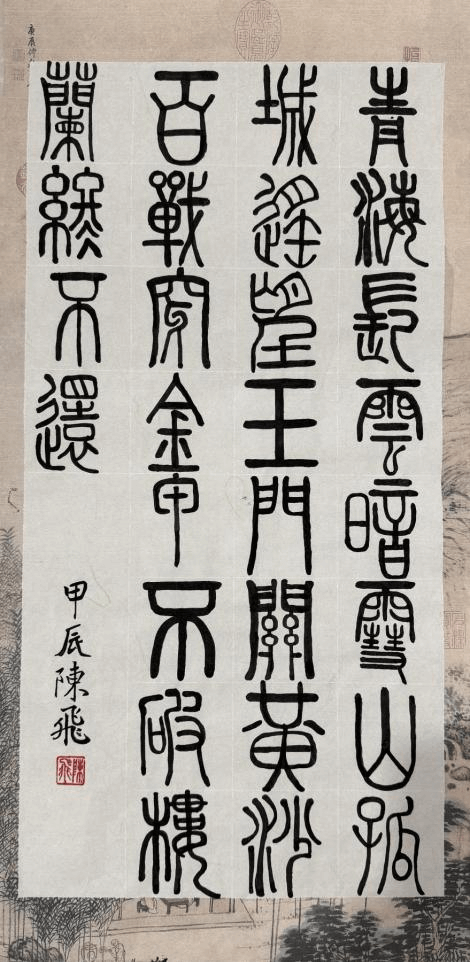 青海長雲暗雪山孤
城遙望玉門關黃沙
百戰穿金甲不破樓
蘭終不還
甲辰陳飛
陳飛